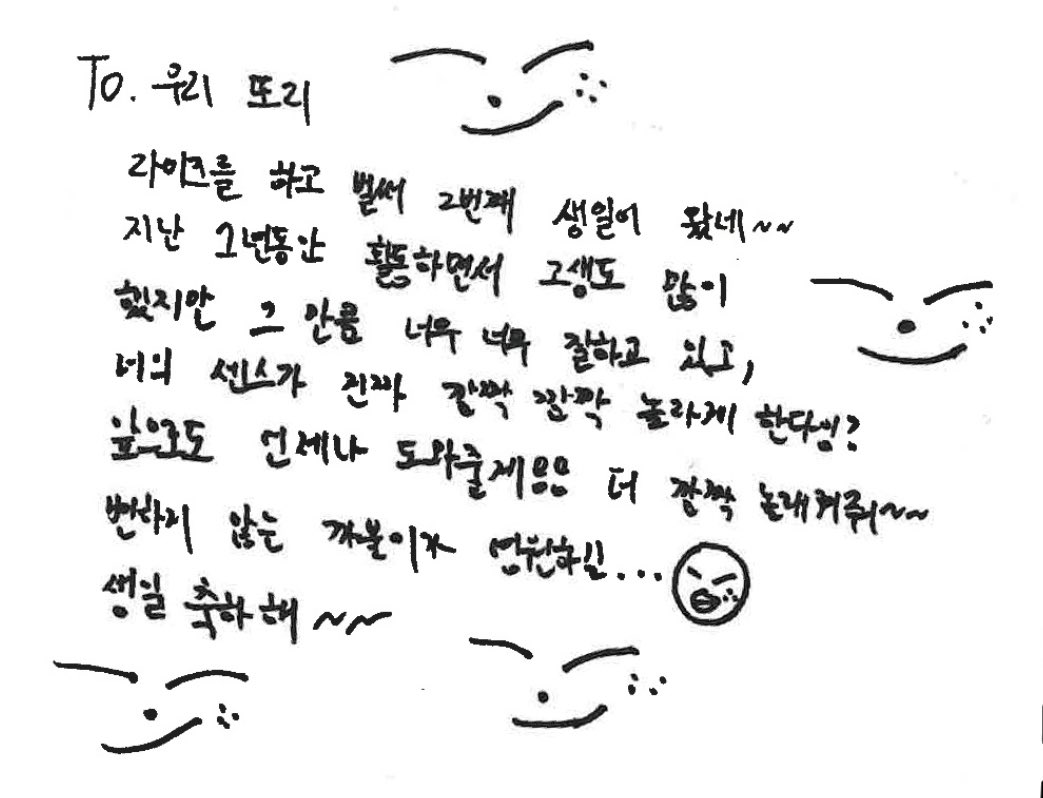 To. 우리 또리
라이즈를 하고 벌써 2번째 생일이 왔네~~
지난 1년동안 활동하면서 고생도 많이
했지만 그 만큼 너무 너무 잘하고 있고,
너의 센스가 진짜 깜짝 깜짝 놀라게 한다잉?
앞으로도 언제나 도와줄게 더 깜짝 놀래켜줘~~
변하지 않는 까불이가 영원하길...
생일 축하해 ~~